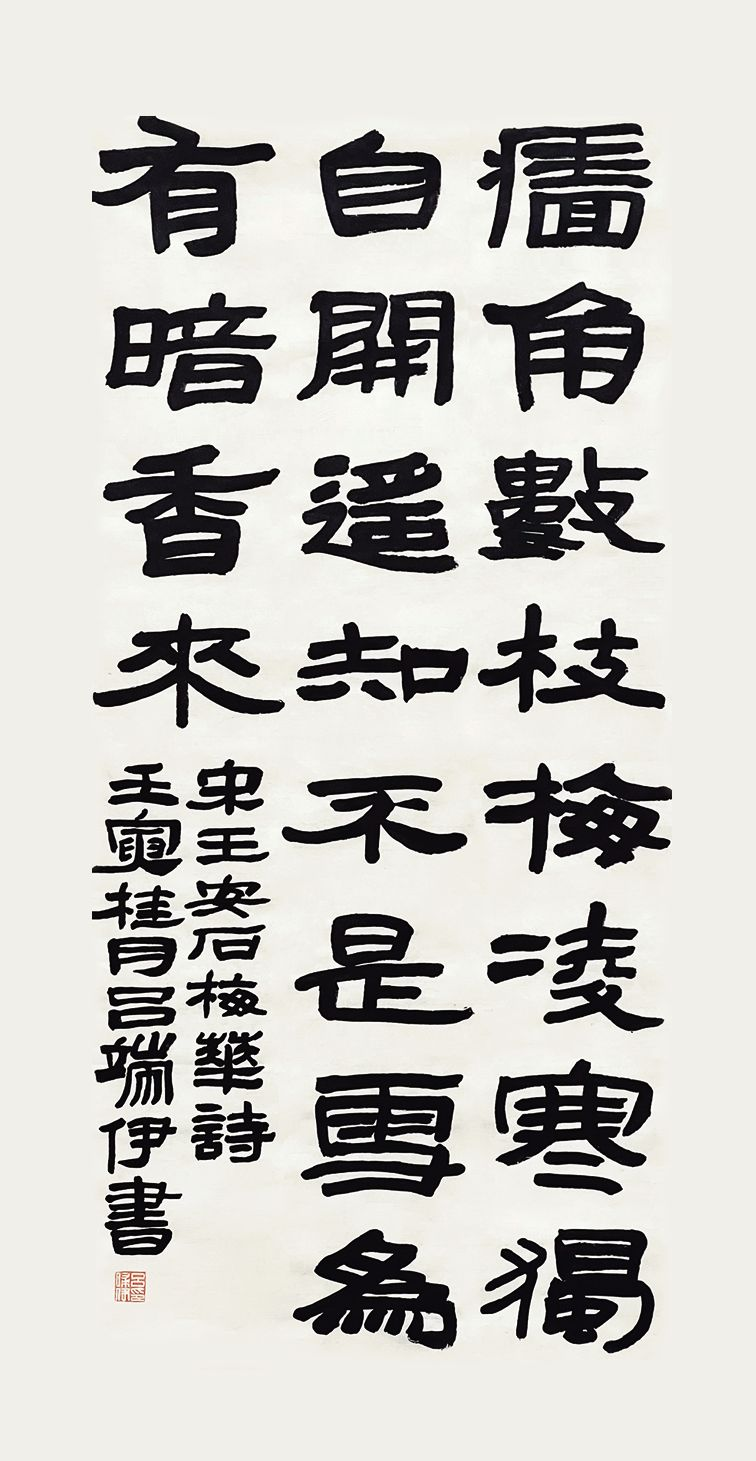 牆角數枝梅凌寒獨
自開遙知不是雪為
有暗香來
宋王安石梅華詩
壬寅桂月呂端伊書